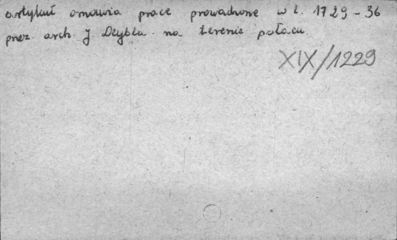 artykuł omawia prace prowadzone w l. 1729-36
przez arch. J Deybla na terenie pałacu
XIX/1229